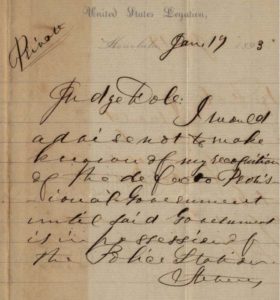 United States Legation,
Private
Honolulu Jan. 17 1893
Judge Dole: I would
advise not to make
known of my recognition
of the de facto Provis-
ional Government
until said Government
is in possession of
the Police Station
Stevens